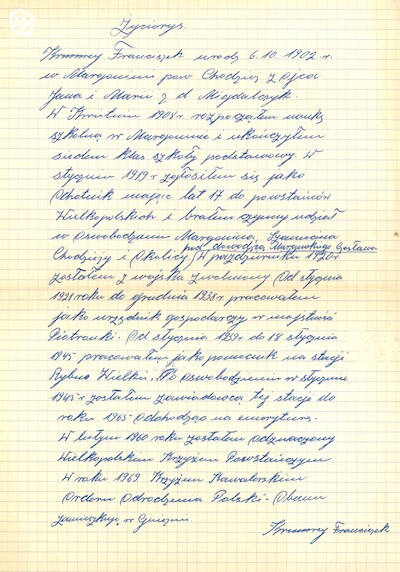 Życiorys.
Franciszek urodz 6.10.1902 r.
w Margoninie pow Chodzież z Ojca
Jana i Marii z d Migdalczyk.
W Kwietniu 1908 r. rozpocząłem naukę
szkolną w Margoninie i ukończyłem
siedem klas szkoły podstawowej. W
styczniu 1919 r zgłosiłem się jako
Ochotnik mając lat 17 do powstańców
Wielkopolskich i brałem czynny udział
w Oswobodzeniu Margonina, Szamocina
Chodzieży i Okolicy, pod dowódzcą Gustawa
W październiku 1920 r.
zostałem z wojska zwolniony Od stycznia
1921 roku do grudnia 1938 r pracowałem
jako urzędnik gospodarczy w majętności
Od stycznia 1939 r. do 18 stycznia
1945 pracowałem jako pomocnik na stacji
Rybno Wielkie. Po Oswobodzeniu w styczniu
1945 r zostałem zawiadowcą tej stacji do
roku 1965 odchodząc na emeryturę.
W lutym 1960 roku zostałem odznaczony
Wielkopolskim Krzyżem Powstańczym
W roku 1969 Krzyżem Kawalerskim
Orderu Odrodzenia Polski. Obecnie
zamieszkuję w Gnieźnie
Franciszek